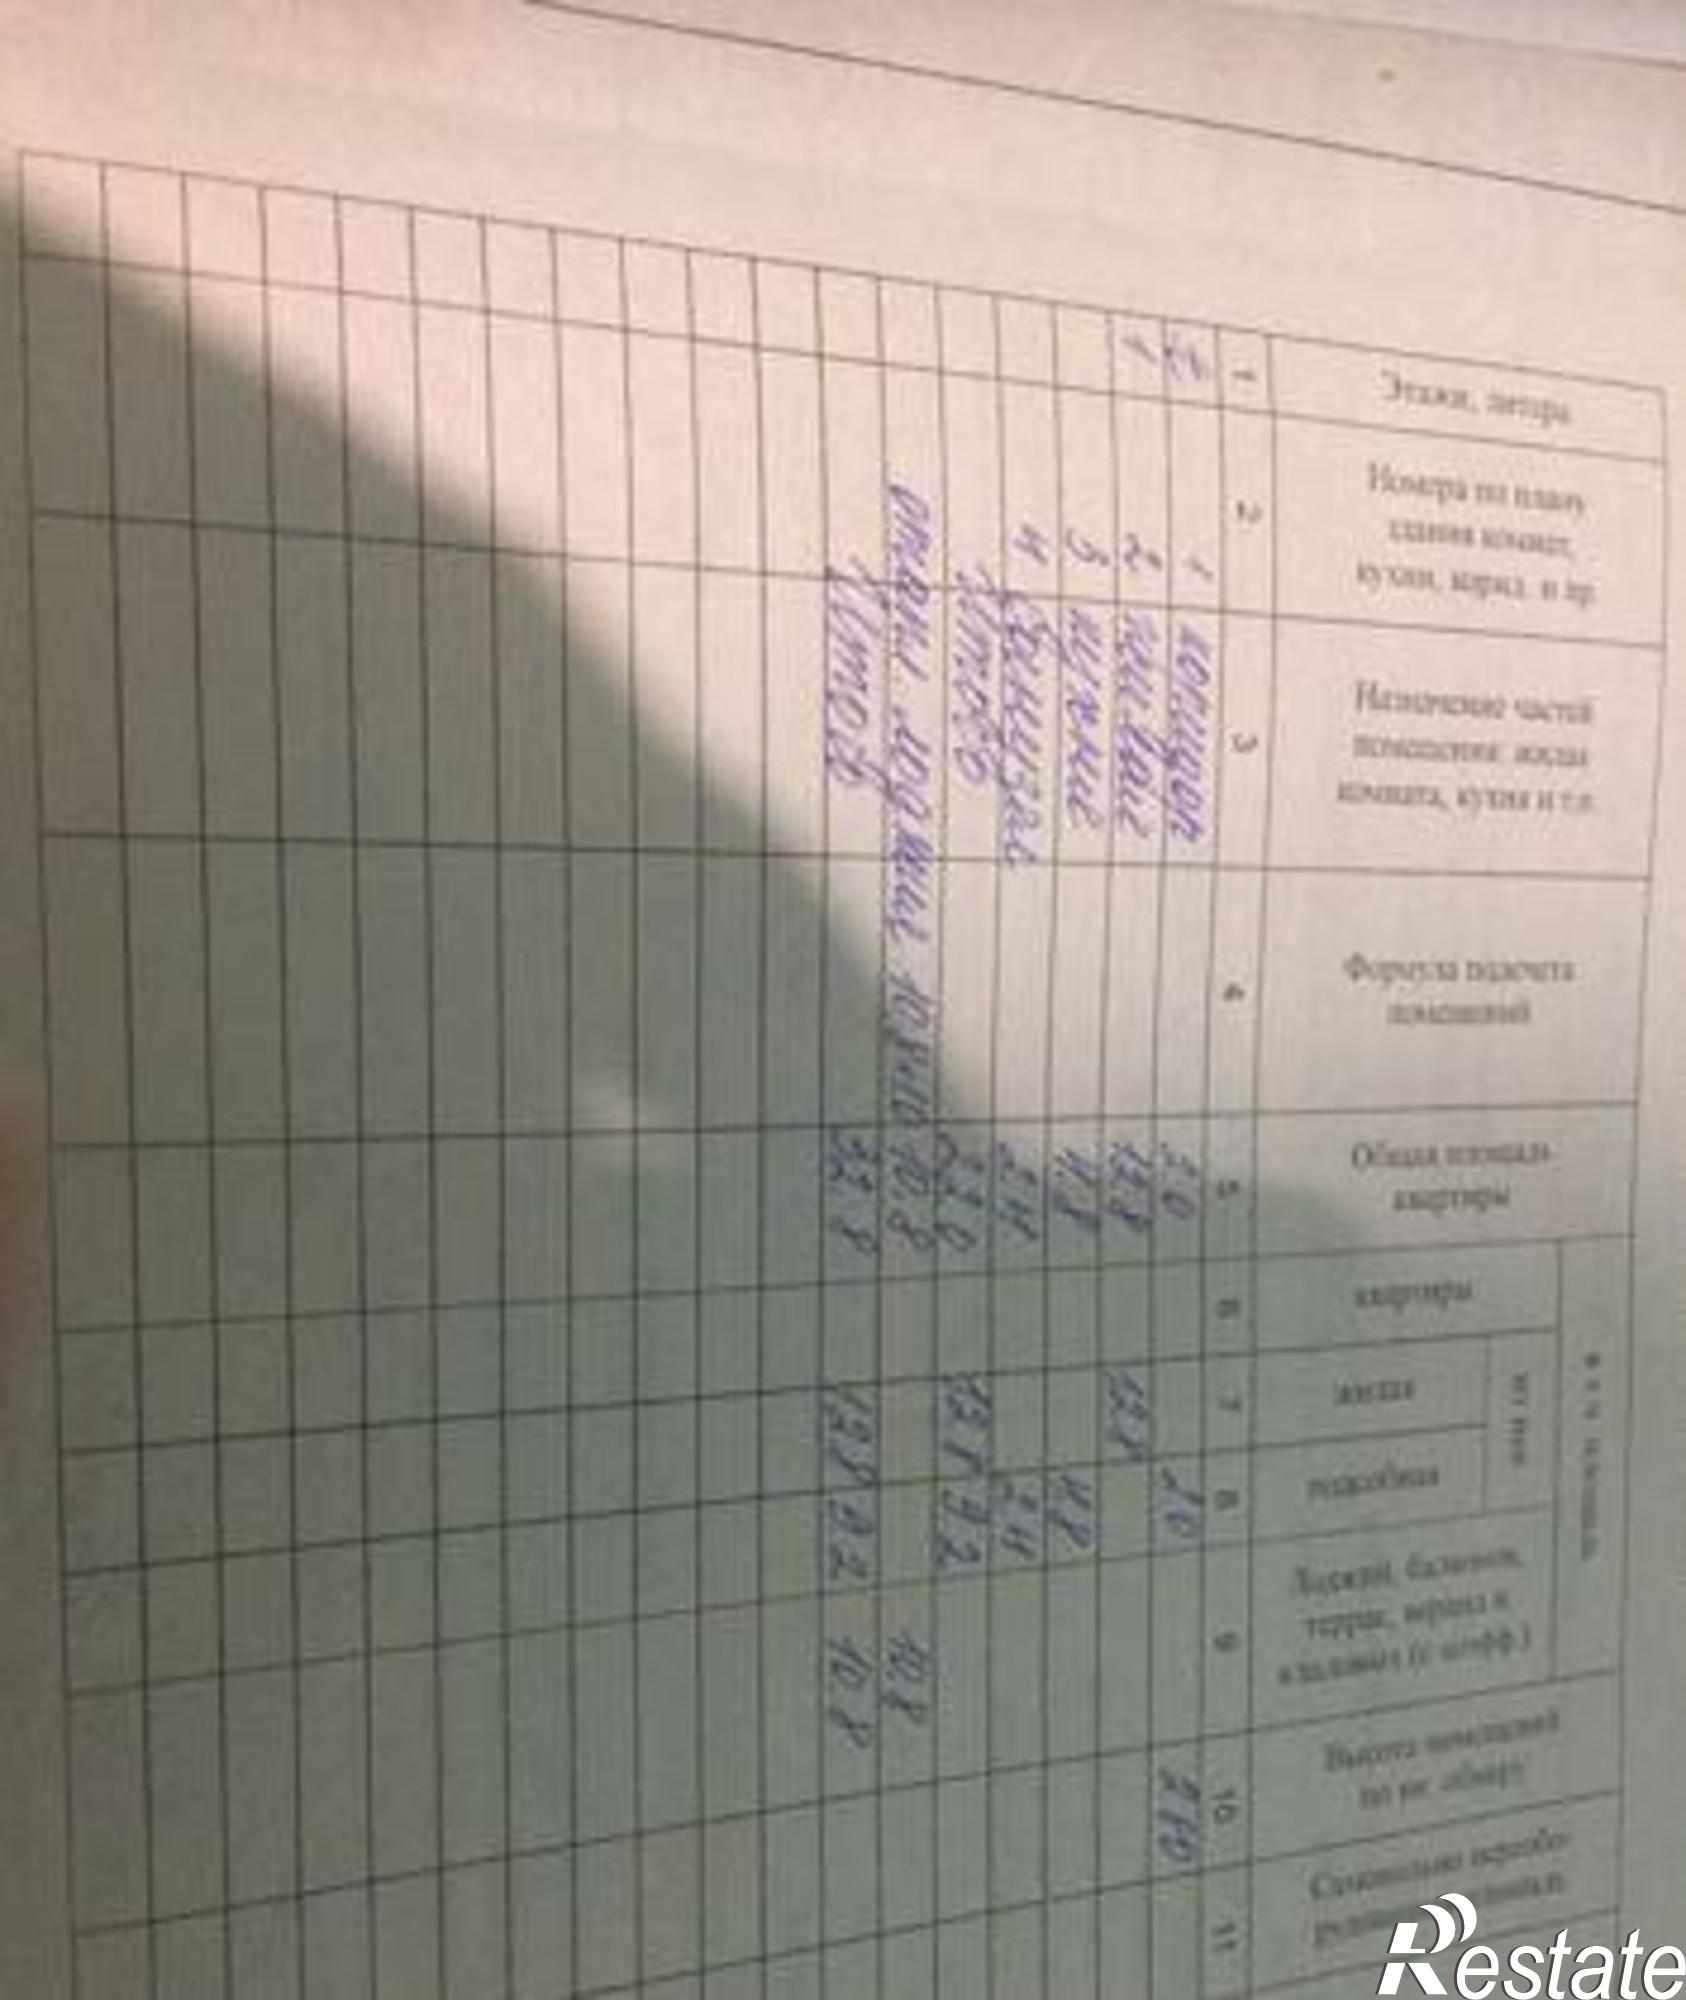 Этажи, литера
Номера по плану
здания комнат,
кухни, корид. и пр
Назначение частей
помещения: жилая
комната, кухня и т.п.
Формула подсчета
помещений
Общая площадь
квартиры
в т.ч. площадь
квартиры
из нее
жилая
подсобная
Лоджий, балконов,
террас, веранд и
кладовых (с коэфф.)
Высота помещений
по вн. обмеру
Самовольно переобо-
1 2 3 4 5 6 7 8 9 10 11
1 коридор 2.0 2.0
1 2 жилые 12.8
3 кухня 4.8 4.8
4 санузел 2.4 2.4
Итого 22.0 12.8 9.2
откр. лоджия 10.8 10.8
Итого 32.8 12.8 9.2 10.8
Restate